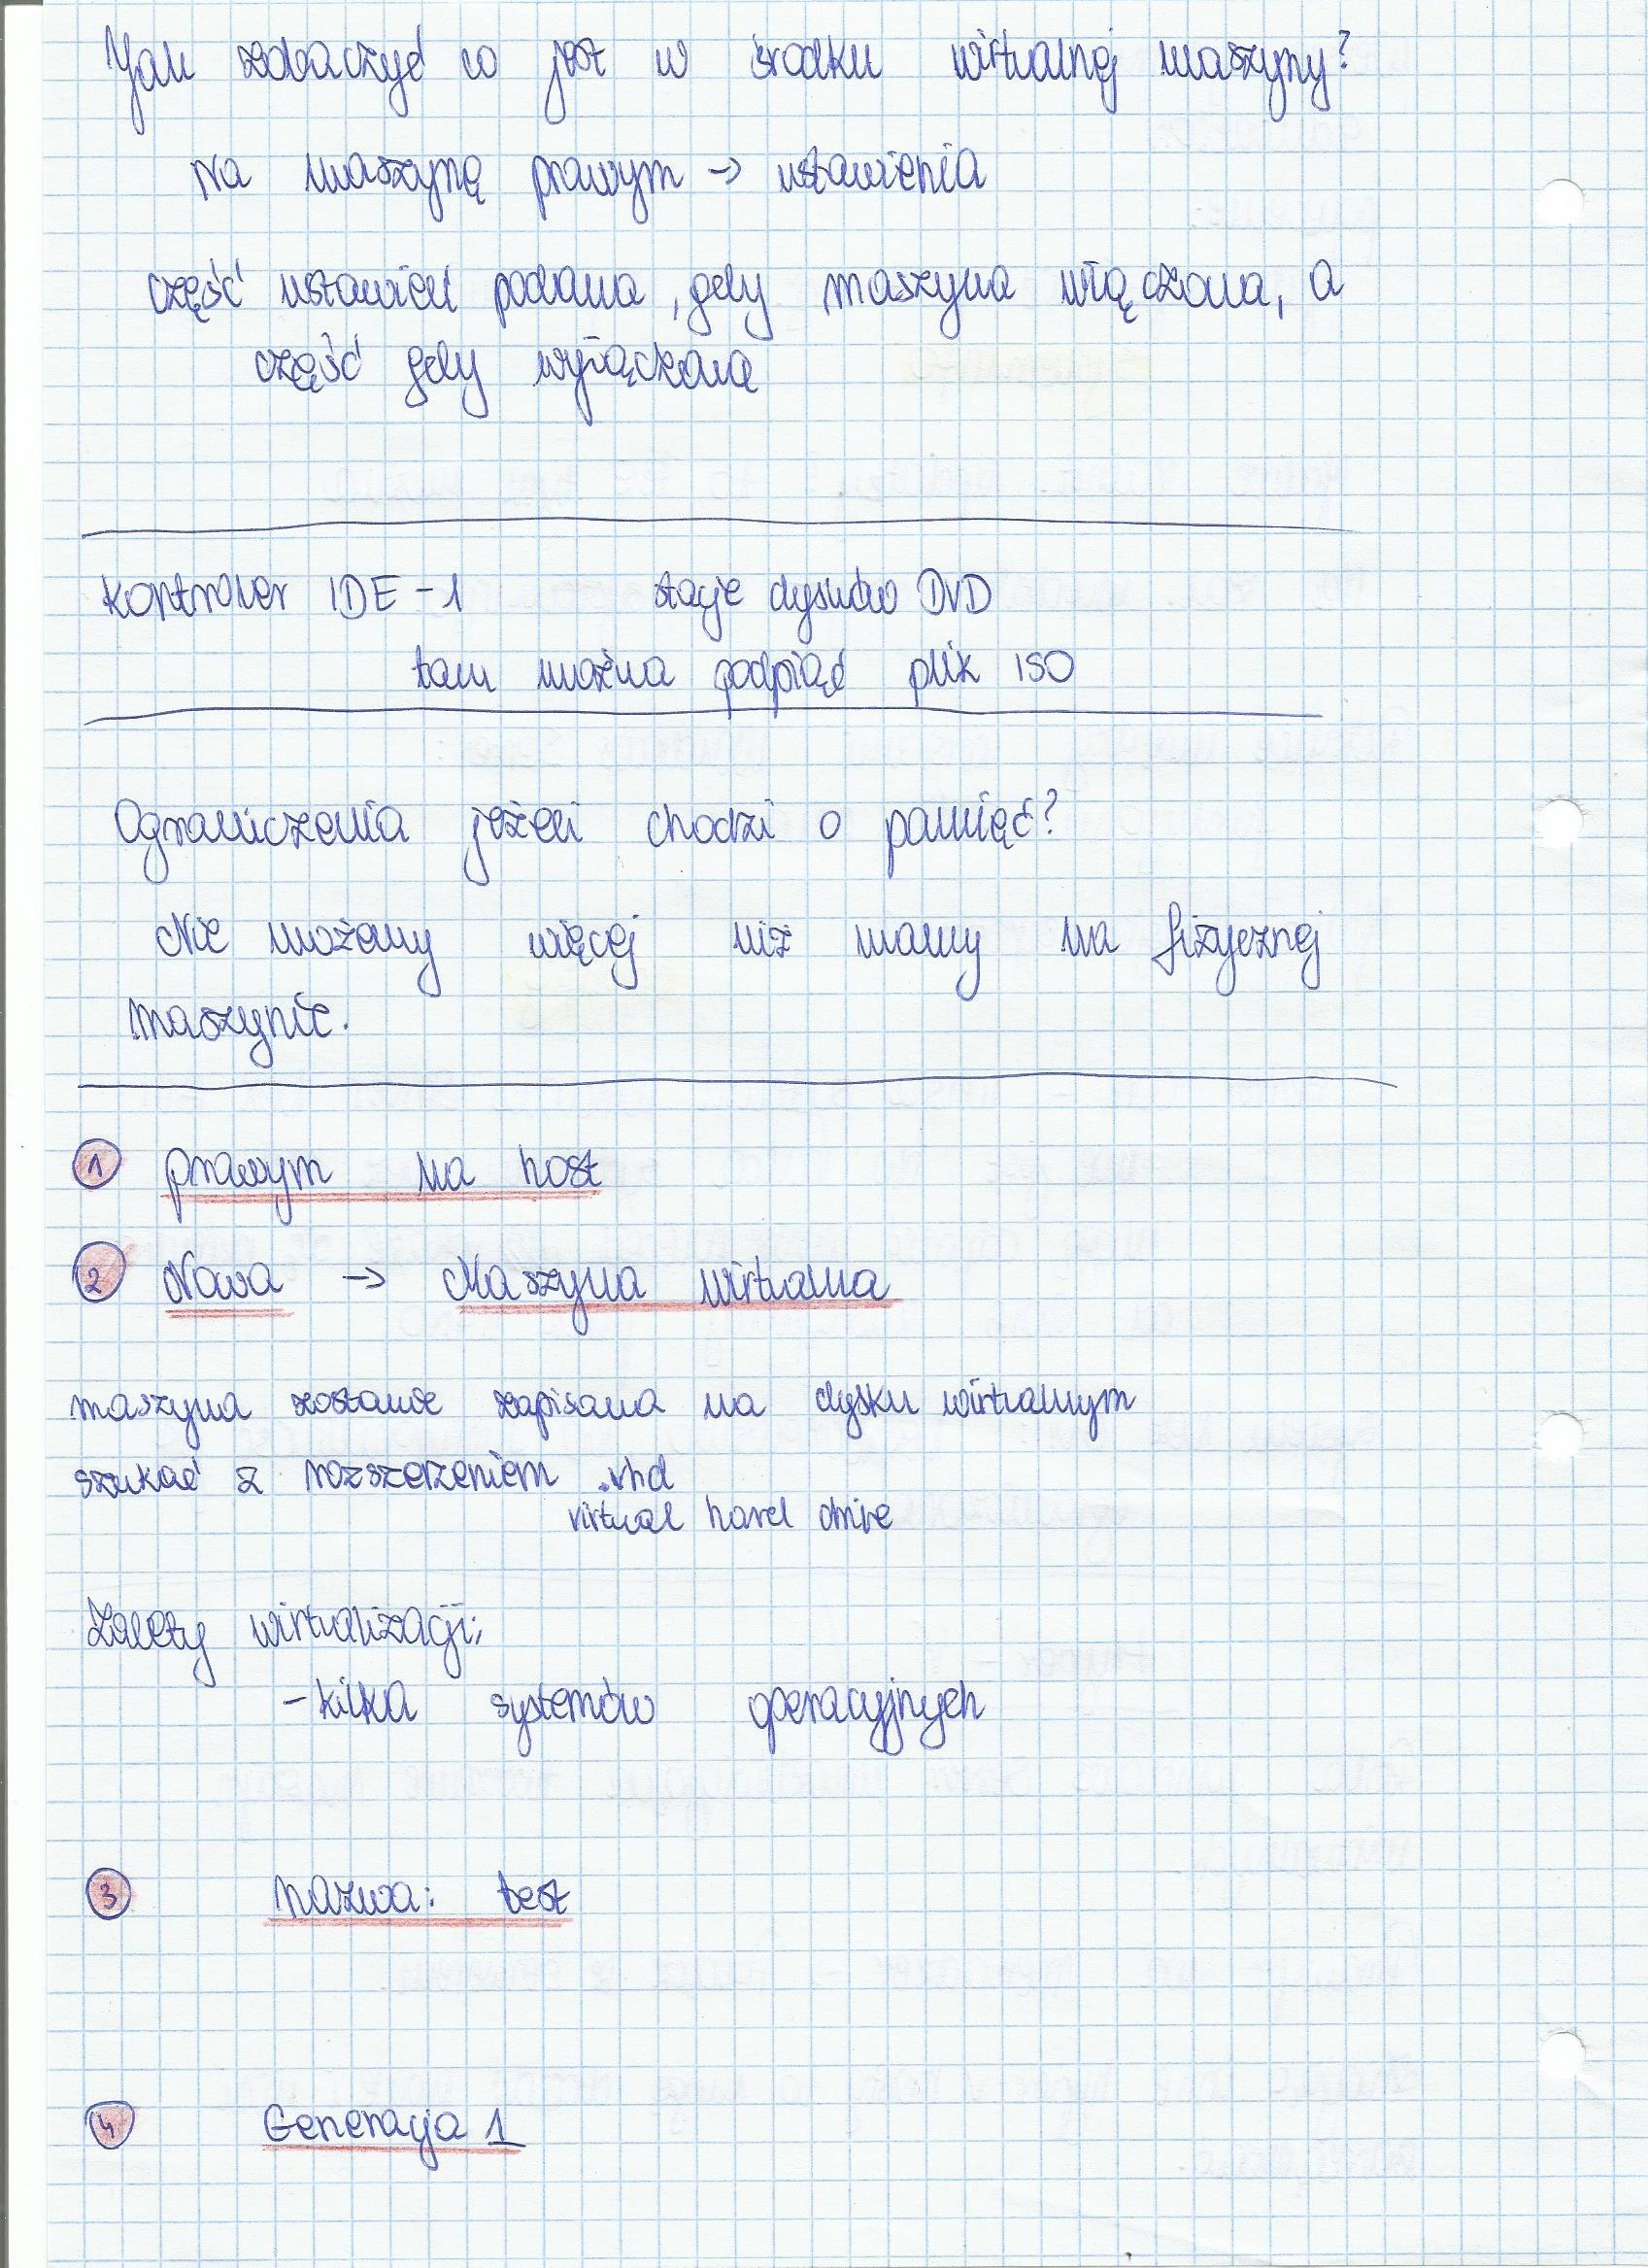 Jak zobaczyć co jest w środku wirtualnej maszyny?
Na maszynę prawym → ustawienia
część ustawień podana, gdy maszyna włączona, a
część gdy wyłączona
kontroler IDE-1 stacje dysków DVD
tam można podpiąć plik ISO
Ograniczenia jeżeli chodzi o pamięć?
Nie możemy więcej niż mamy na fizycznej
maszynie.
1 prawym na host
2 Nowa → Maszyna wirtualna
maszyna zostanie zapisana na dysku wirtualnym
szukać z rozszerzeniem .vhd
virtual hard drive
Zalety wirtualizacji:
- kilka systemów operacyjnych
3 nazwa: test
4 Generacja 1